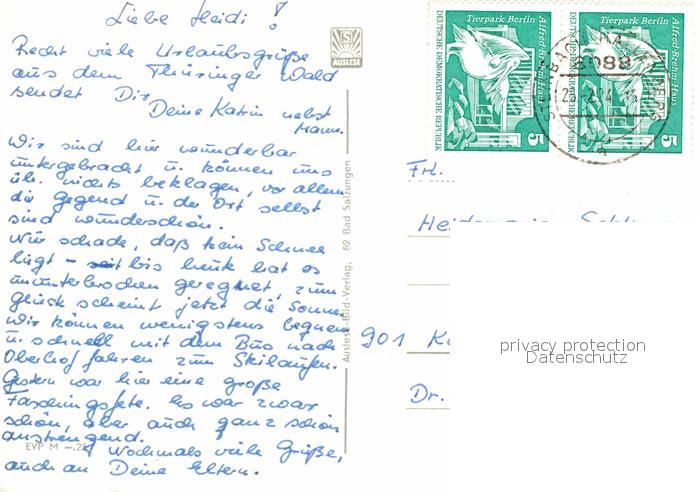 Liebe Heidi!
Recht viele Urlaubsgrüße
aus dem Thüringer Wald
sendet Dir
Deine Katrin nebst
Mann.
Wir sind hier wunderbar
untergebracht u. können uns
üb. nichts beklagen, vor allem
die Gegend u. der Ort selbst
sind wunderschön.
Nur schade, daß kein Schnee
liegt – seit bis heute hat es
ununterbrochen geregnet, zum
Glück scheint jetzt die Sonne.
Wir können wenigstens bequem
u. schnell mit dem Bus nach
Oberhof fahren zum Skilaufen.
Gestern war hier eine große
Faschingsfete. Es war zwar
schön, aber auch ganz schön
anstrengend.
Nochmals viele Grüße,
auch an Deine Eltern.
EVP M –.25
AUSLESE
Auslese-Bild-Verlag, 62 Bad Salzungen
Tierpark Berlin Alfred-Brehm-Haus
DEUTSCHE DEMOKRATISCHE REPUBLIK
5
Tierpark Berlin Alfred-Brehm-Haus
DEUTSCHE DEMOKRATISCHE REPUBLIK
5
6088
Frl.
901 K
Dr.
privacy protection
Datenschutz